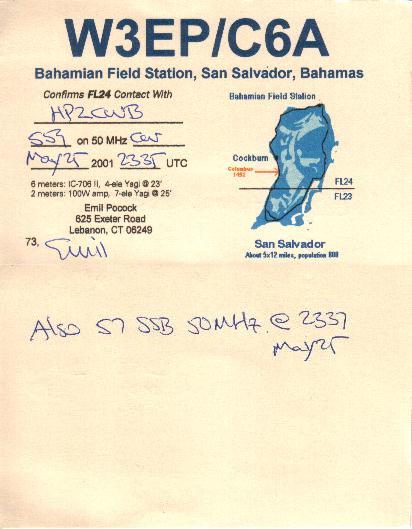 W3EP/C6A
Bahamian Field Station, San Salvador, Bahamas
Confirms FL24 Contact With
HP2CWB
559 on 50 MHz CW
May 25 2001 2335 UTC
6 meters: IC-706 II, 4-ele Yagi @ 23'
2 meters: 100W amp, 7-ele Yagi @ 25'
Emil Pocock
625 Exeter Road
Lebanon, CT 06249
73, Emil
Bahamian Field Station
Cockburn
Columbus
1492
FL24
FL23
San Salvador
About 5x12 miles, population 800
Also 57 SSB 50MHz @ 2337
May 25